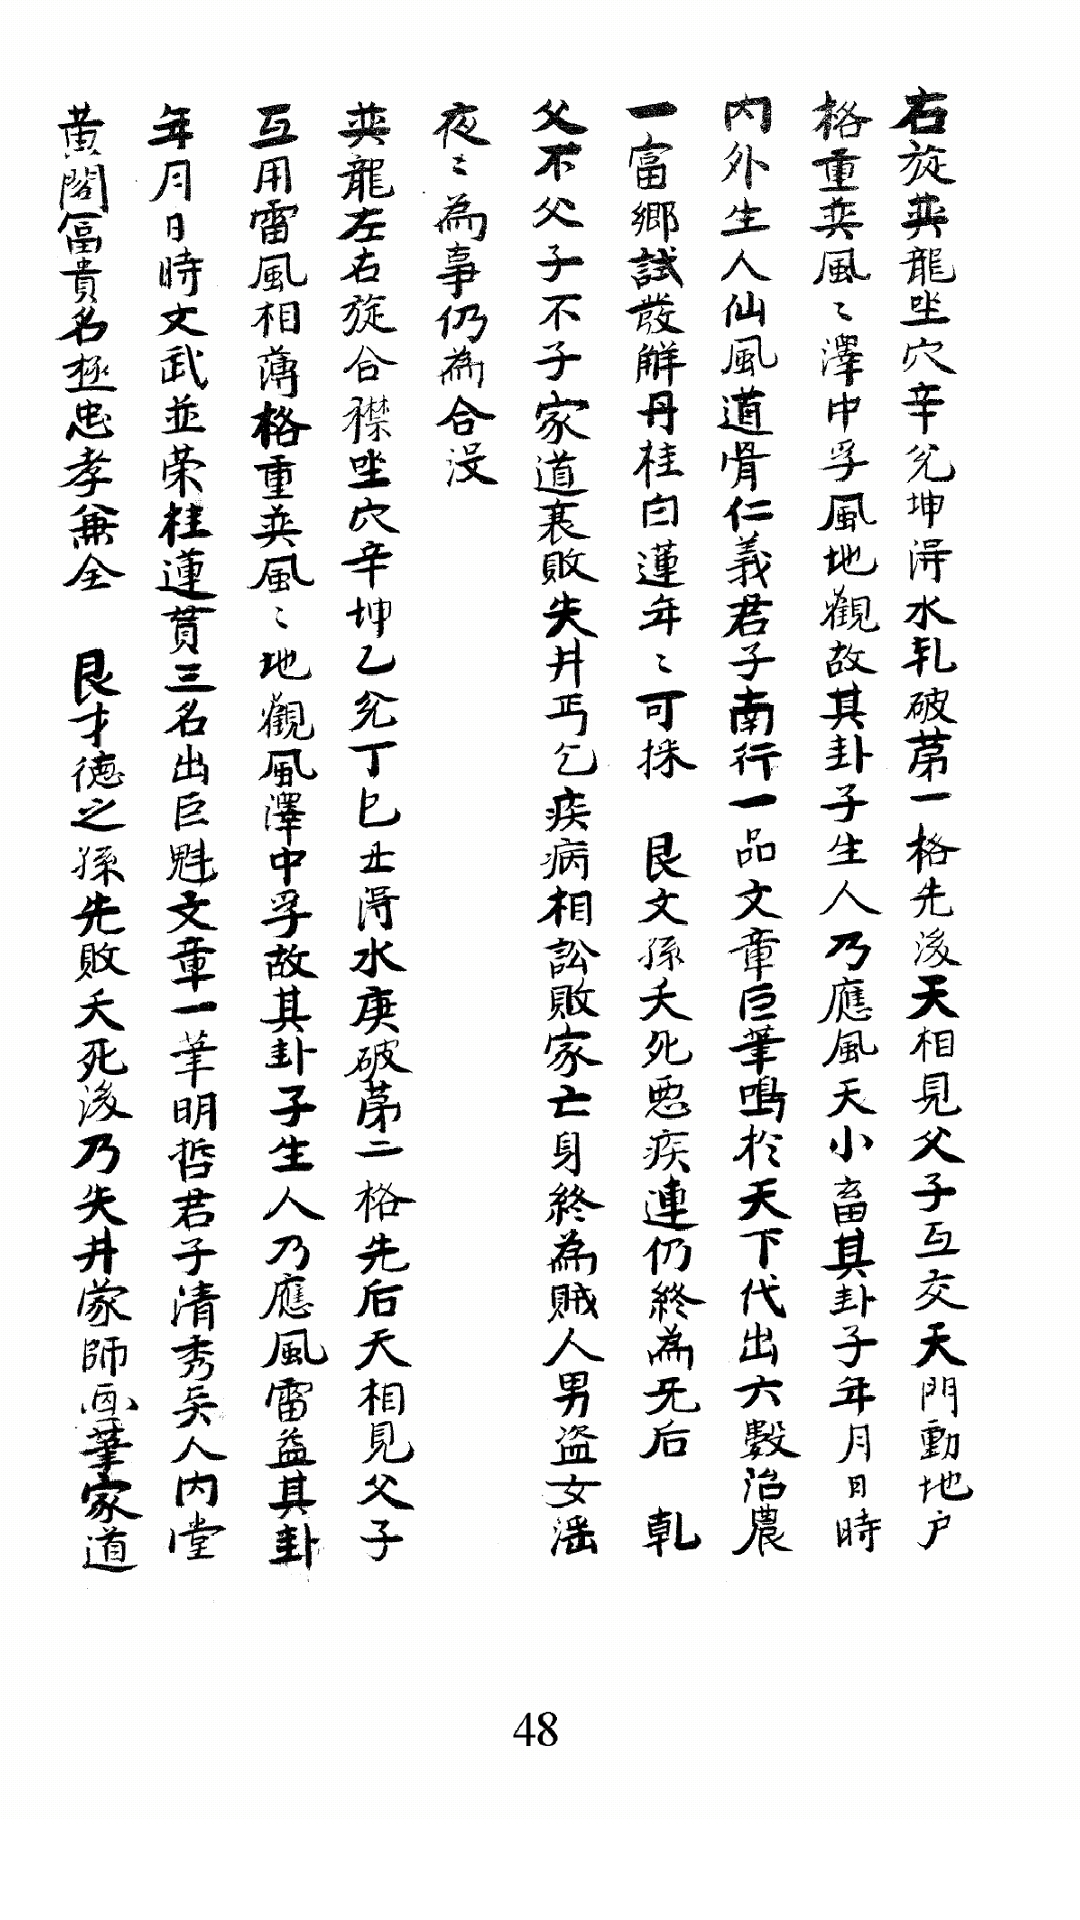 右旋巽龍坐穴辛兊坤淂水乹破苐一格先後天相見父子互交天門動地户
格重巽風〻澤中孚風地觀故其卦子生人乃應風天小畜其卦子年月日時
内外生人仙風道骨仁義君子南行一品文章巨筆鳴於天下代出六數治農
一富鄉試發觧丹桂白蓮年〻可採　艮文孫夭死悪疾連仍終為旡后　乹
父不父子不子家道衰敗失井丐乞疾病相訟敗家亡身終為賊人男盗女滛
夜〻為事仍為合没
巽龍左右旋合襟坐穴辛坤乙兊丁巳丑淂水庚破苐二格先后天相見父子
互用雷風相薄格重巽風〻地觀風澤中孚故其卦子生人乃應風雷益其卦
年月日時文武並荣桂蓮貫三名出巨魁文章一筆明哲君子清秀美人内堂
黄閣富貴名極忠孝兼全　艮才德之孫先敗夭死後乃失井蒙師画筆家道
48